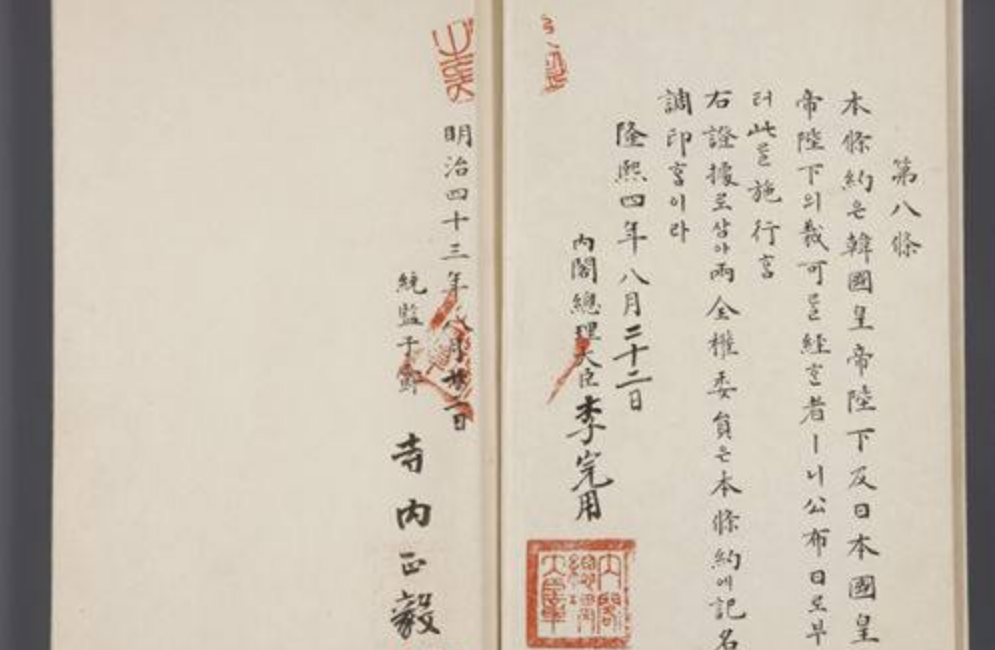 第八條
本條約은韓國皇帝陛下及日本國皇
帝陛下의裁可를經ᄒᆞᆫ者ㅣ니公布日로부
터此를施行홈
右證據로삼아兩全權委員은本條約에記名
調印홈이라
隆熙四年八月二十二日
內閣總理大臣李完用
內閣
總理
大臣章
明治四十三年八月廿二日
統監子爵 寺內正毅